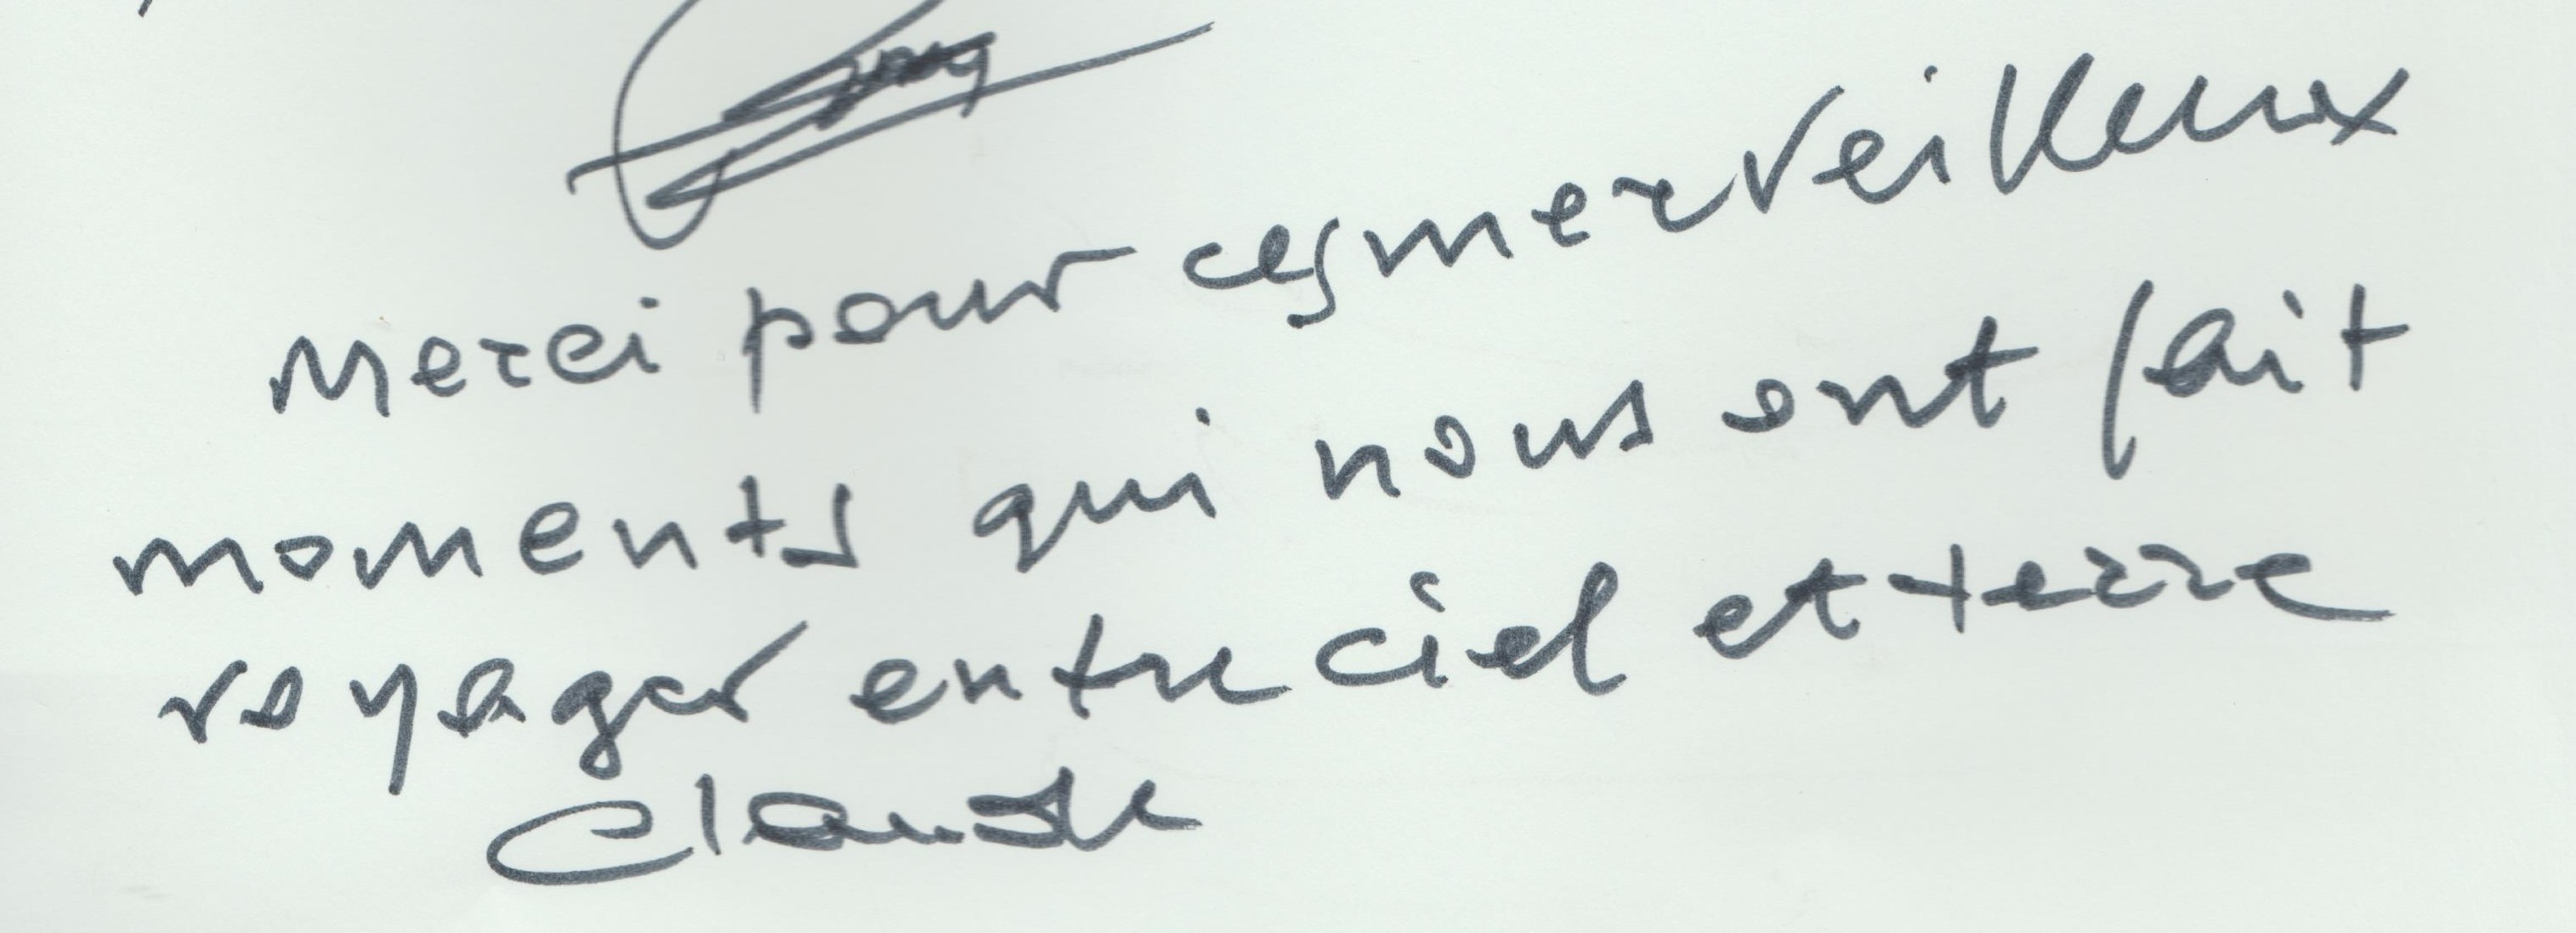 Merci pour ces merveilleux
moments qui nous ont fait
voyager entre ciel et terre
Claude